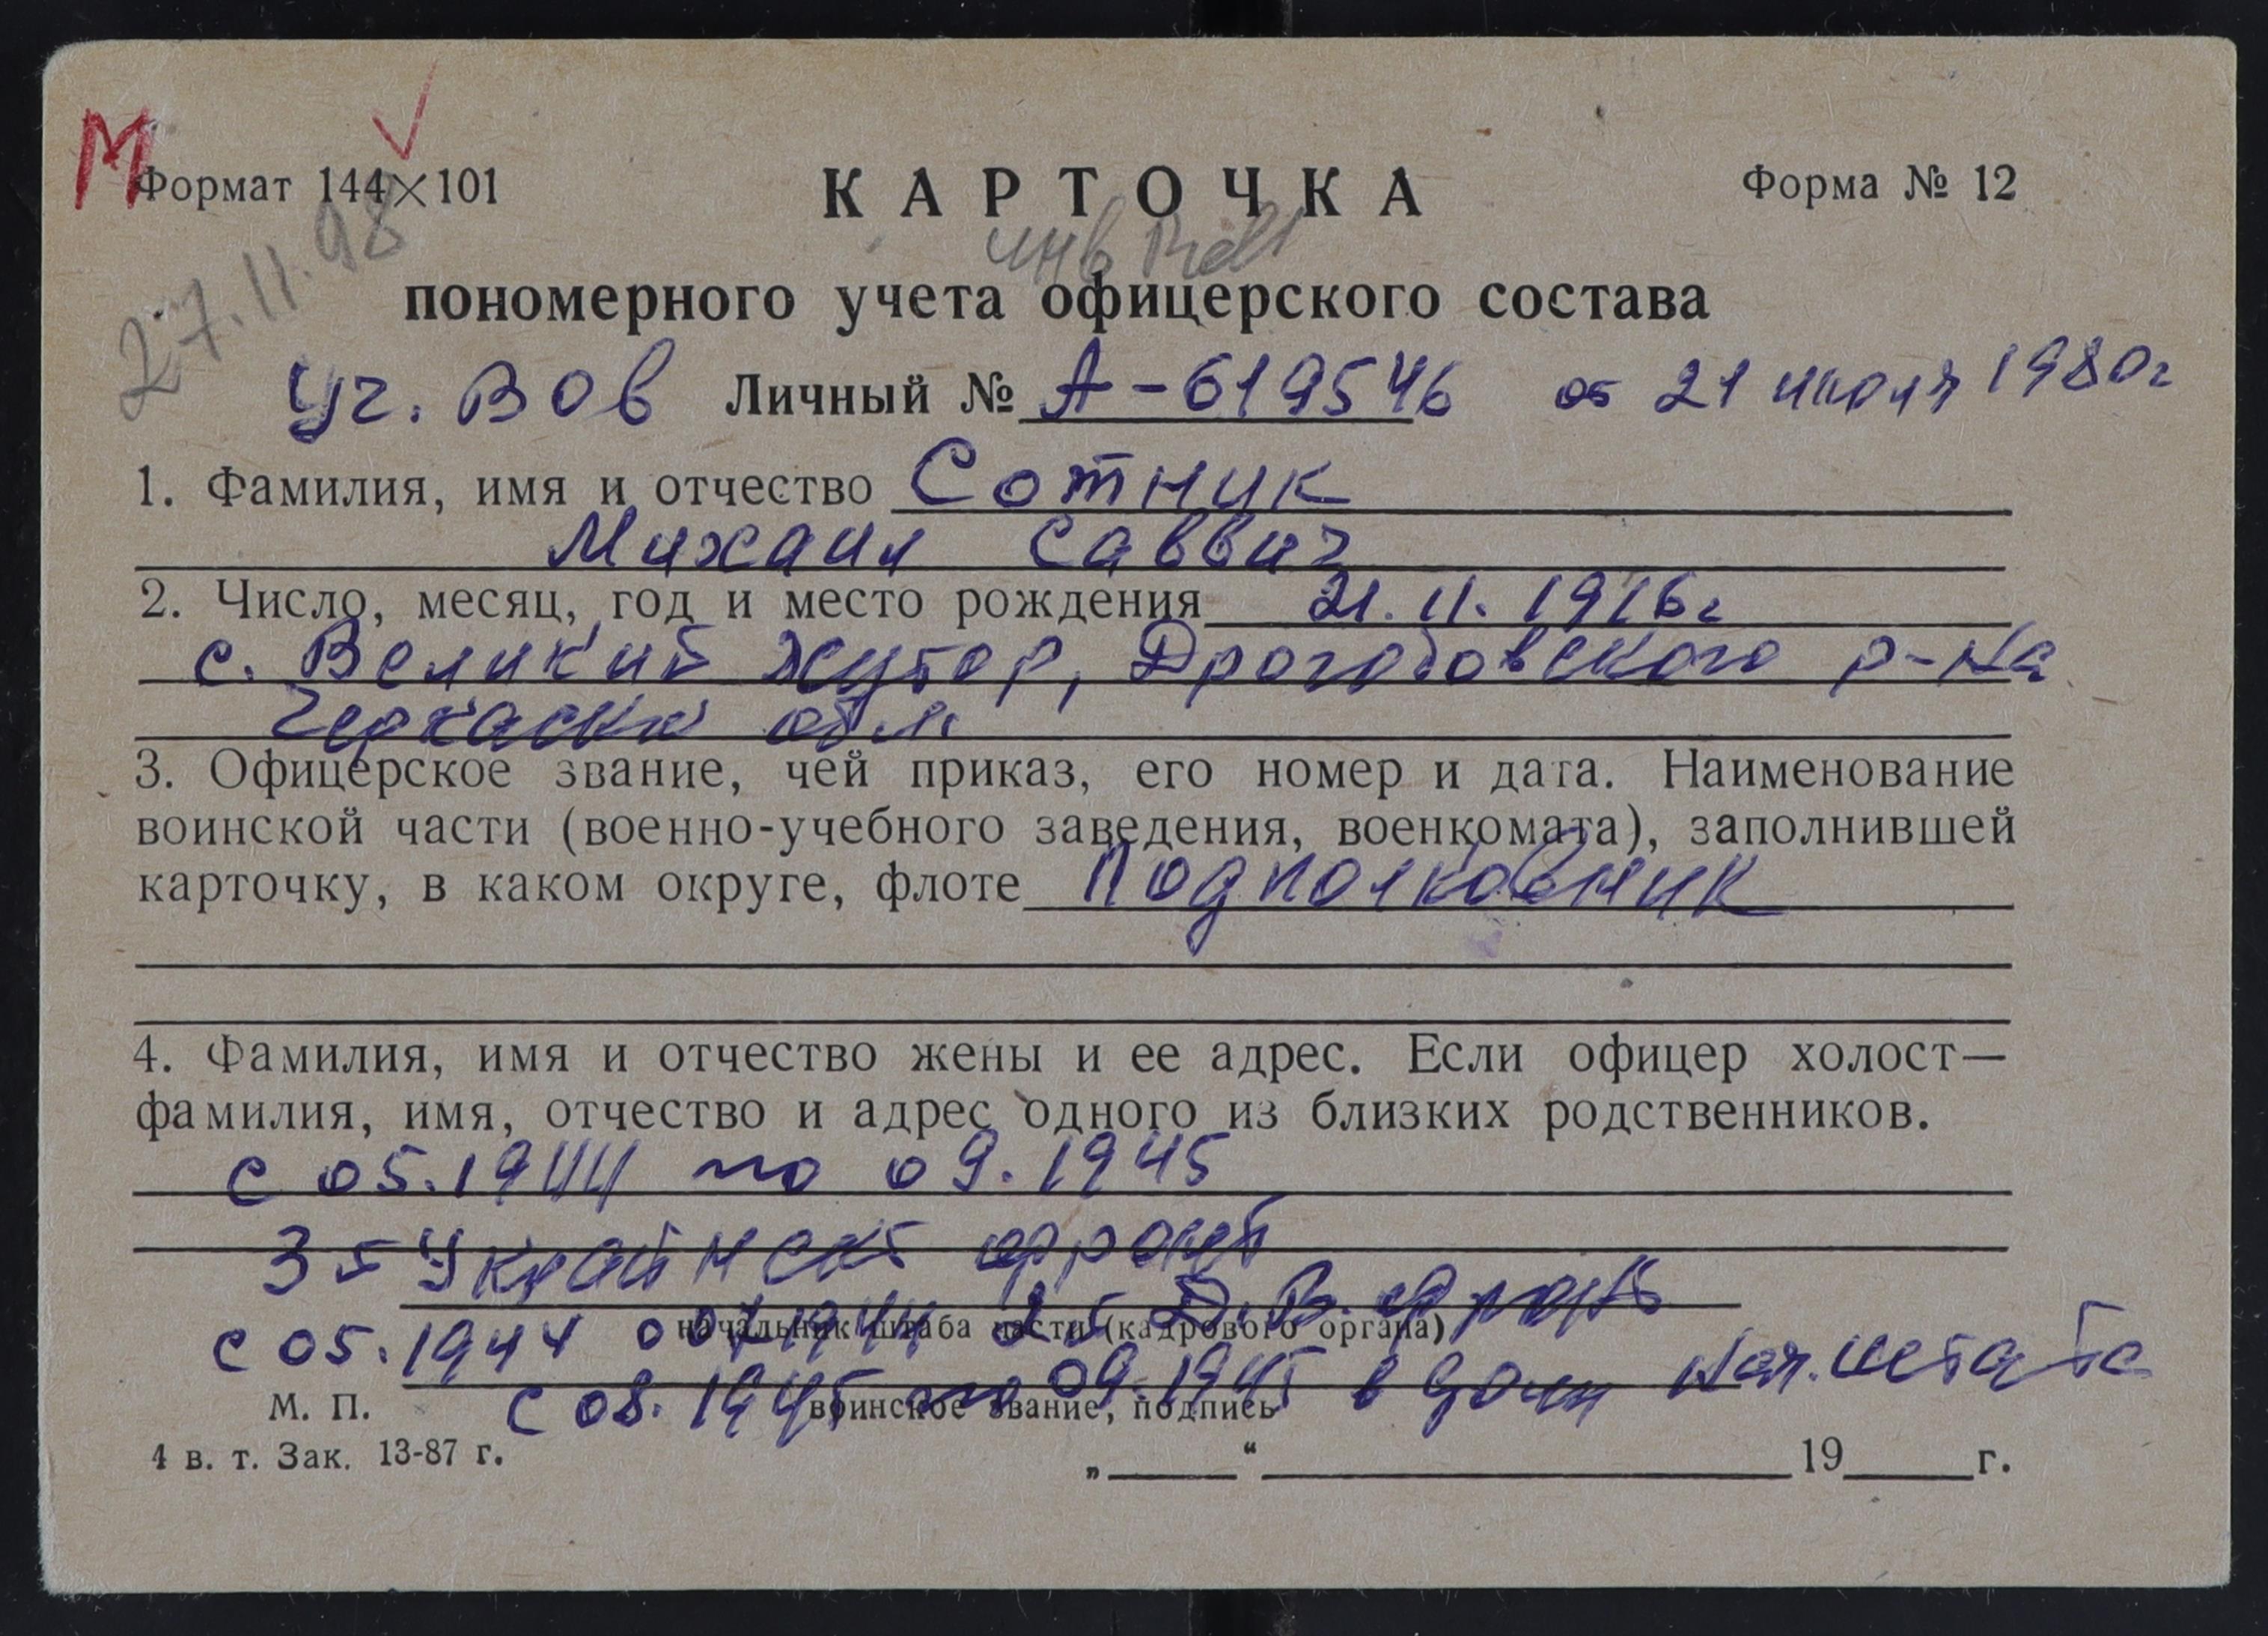 М
Формат 144×101
КАРТОЧКА
Форма № 12
27.11.98
инв
пономерного учета офицерского состава
Уч. ВОВ Личный № А-619546 от 21 июля 1980г
1. Фамилия, имя и отчество Сотник
Михаил Саввич
2. Число, месяц, год и место рождения 21.11.1916г
с. Великий Хутор, Дрогобовского р-на
Черкаск обл.
3. Офицерское звание, чей приказ, его номер и дата. Наименование
воинской части (военно-учебного заведения, военкомата), заполнившей
карточку, в каком округе, флоте Подполковник
4. Фамилия, имя и отчество жены и ее адрес. Если офицер холост—
фамилия, имя, отчество и адрес одного из близких родственников.
с 05.1944 по 09.1945
3й Украинский фронт
Д.В. фронт
начальник штаба части (кадрового органа)
с 05.1944
с 08.1945 по 09.1945 в
М. П. воинское звание, подпись
4 в. т. Зак. 13-87 г.
„ “ 19 г.